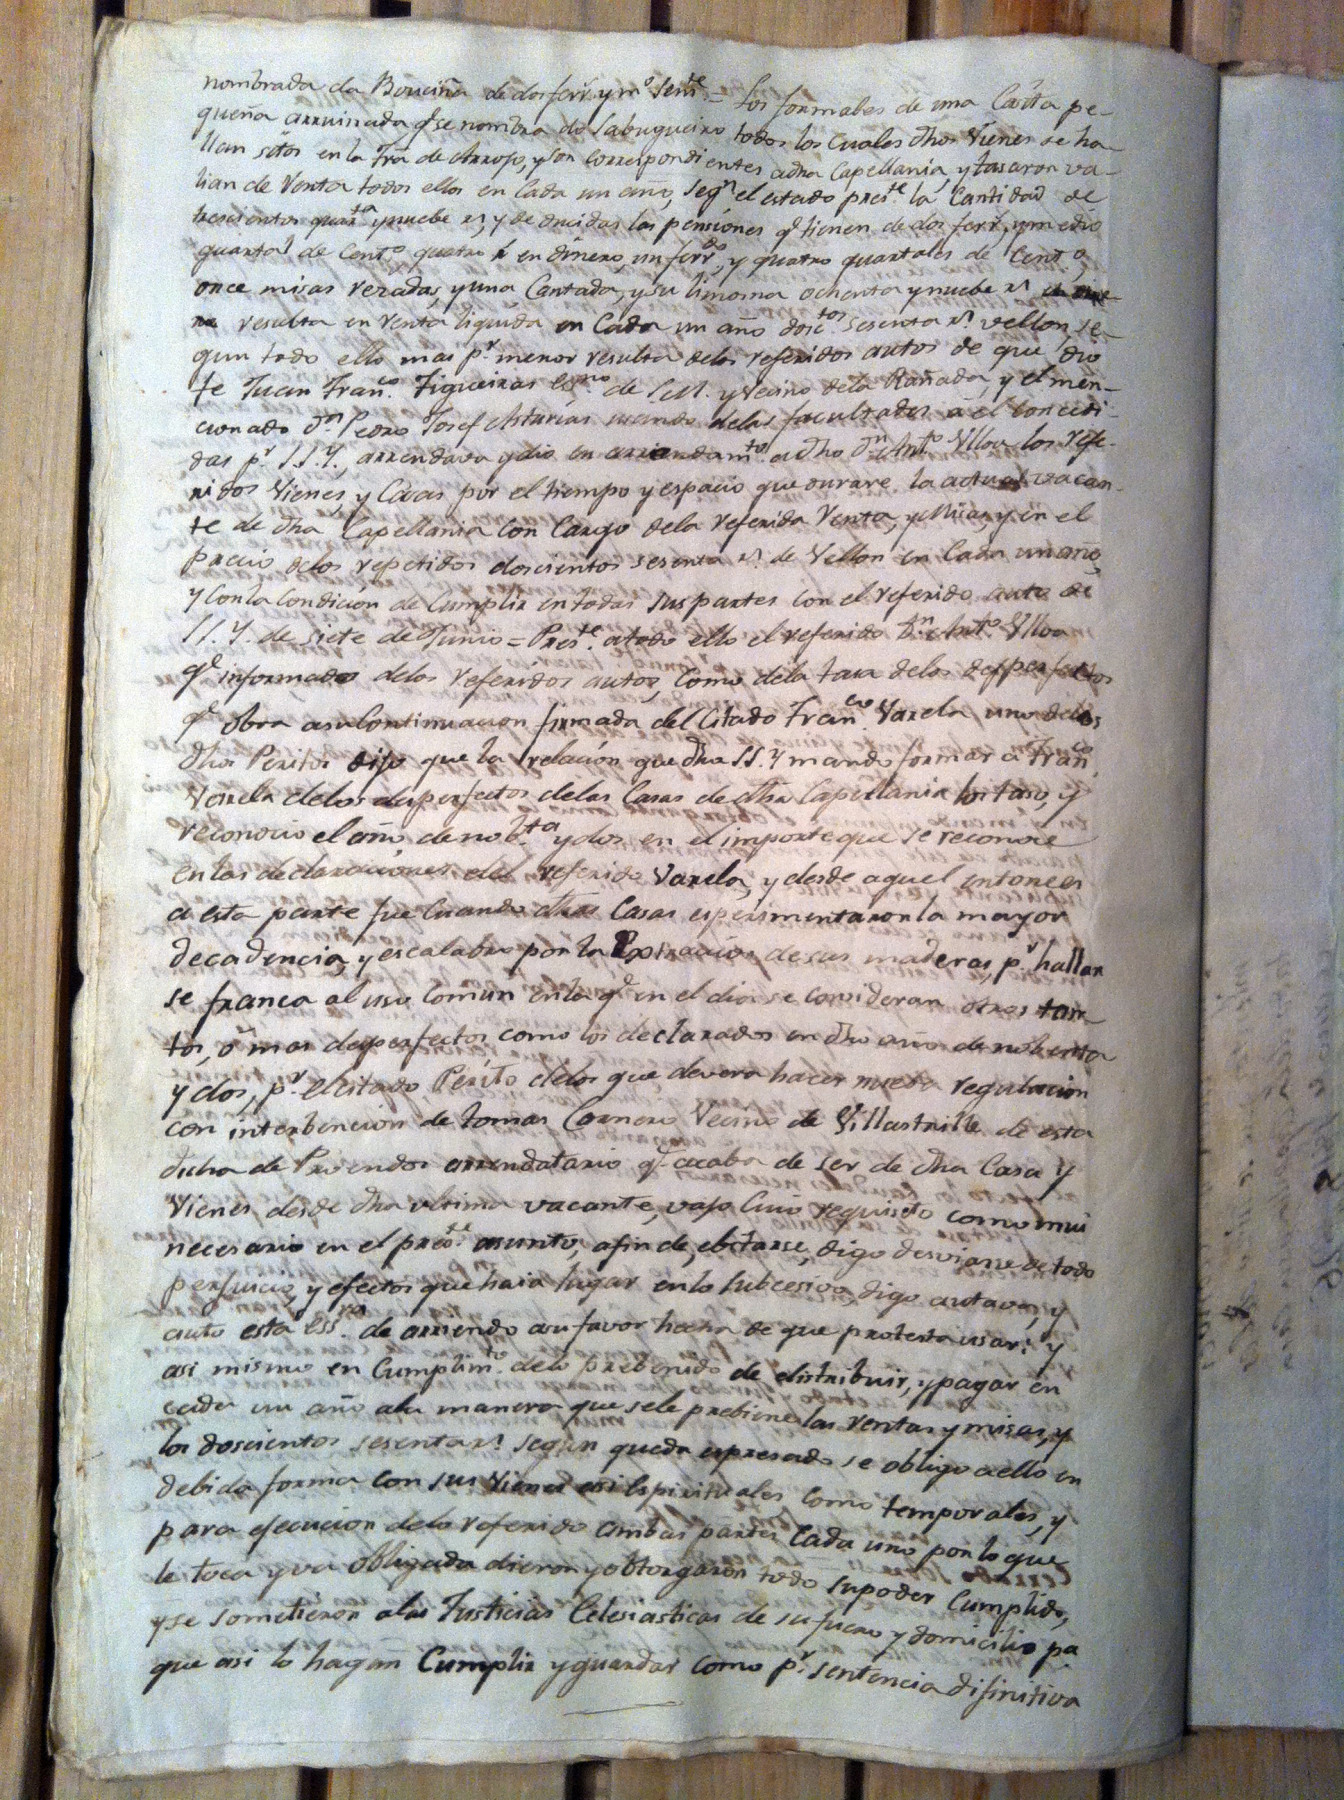 nombrada da Bouciña de dos ferr.s y m.o sem.te = los formales de una Casita pe-
queña arruinada q.e se nombra do Sabugueiro todos los cuales dhos Vienes se ha-
llan sitos en la fra de Arrojo, y son correspondientes a dha Capellania, y tasaron va-
lian de Venta todos ellos en Cada un año, seg.n el estado pres.te la Cantidad de
trescientos quar.ta y nuebe r.s, y deducidas las pensiones q.e tienen de dos ferr.s, y medio
quartal de Cent.o quatro r.s en dinero, un ferr.do, y quatro quartales de Cent.o,
once misas rezadas, y una Cantada, y su limosna ochenta y nuebe r.s
resulta en Venta liquida en Cada un año dosc.tos sesenta r.s vellon, se-
gun todo ello mas p.r menor resulta de los referidos autos de que dio
fe Juan Fran.co Figueiras es.no de S.M. y Vecino de la Rañada, y el men-
cionado D.n Pedro Josef Asturias usando de las facultades a el concedi-
das p.r S.S.Y., arrendava y dio en arriendam.to a dho D.n Ant.o Ulloa los refe-
ridos Vienes, y Casas por el tiempo y espacio que durare la actual vacan-
te de dha Capellania con Cargo de la referida Venta, y Misas, y en el
precio de los repetidos doscientos sesenta r.s de Vellon en Cada un año,
y con la condición de Cumplir en todas sus partes con el referido auto de
S.S.Y. de siete de Junio = Pres.te a todo ello el referido D.n Ant.o Ulloa
q.e informado de los referidos autos, como de la tasa de los desperfectos
q.e obra a su Continuacion firmada del Citado Fran.co Varela uno de los
dhos Peritos dijo que la relación que dha SS.Y mando formar a Fran.co
Varela de los desperfectos de las Casas de dha Capellania los taso, y
reconocio el año de nob.ta y dos en el importe que se reconoce
en las declaraciones del referido Varela, y desde aquel entonces
a esta parte fue Cuando dhas Casas esperimentaron la mayor
decadencia, y escalabro por la Extracion de sus maderas, p.r hallar
se franca al uso Común en la q.e en el dia se consideran otros tan-
tos, ó mas desperfectos como los declarados en dho año de nobenta
y dos, p.r el citado Perito de los que devera hacer nueba regulacion
con interbencion de tomas Cornero Vecino de Villastrille de esta
dicha de Proendos arrendatario q.e acaba de ser de dha Casa y
Vienes desde dha ultima vacante, vajo cuio requisito como mui
necesario en el pres.te asunto, a fin de, ebitarse, digo desviarse de todo
perjuicio, y efectos que haia lugar en lo subcesivo, digo autava, y
auto esta ess.ra de arriendo a su favor hecha de que protesta usar: y
asi mismo en Cumplim.to de lo prebenido de distribuir, y pagar en
cada un año a la manera que se le prebiene las rentas y misas, y
los doscientos sesenta r.s segun queda expresado se obligo a ello en
debida forma con sus Vienes asi Espirituales como temporales, y
para ejecucion de lo referido ambas partes Cada uno por lo que
le toca y va obligada dieron y obtorgaron todo su poder Cumplido,
y se sometieron a las Justicias Eclesiasticas de su fuero y domicilio pa
que asi lo hagan Cumplir y guardar como p.r sentencia difinitiva